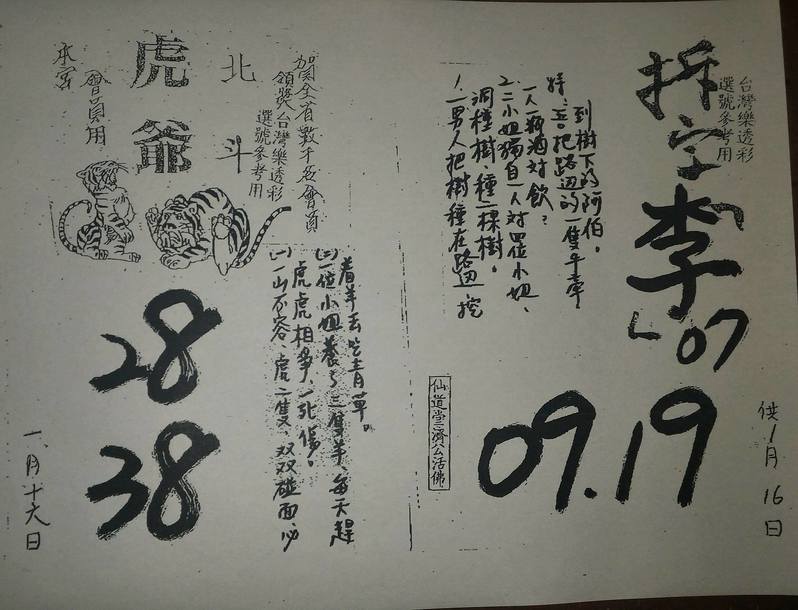 台灣樂透彩
選號參考用
拆字
「李」07
供1月16日
09.19
1.一男人把樹種在路边挖
洞種樹、種一棵樹。
2.二小姐獨自一人对單位小姐、
一人一瓶酒对飲?
到樹下的阿伯。
仙道堂濟公活佛
加國全省數千名會員
領獎台灣樂透彩
選號參考用
北斗
虎爺
會員用
本宮
(一)一山不容、虎二隻、双双碰面、必
虎虎相爭、一死傷。
(二)一位小姐養了三隻羊、每天趕
着羊去吃青草。
28
38
一月十六日